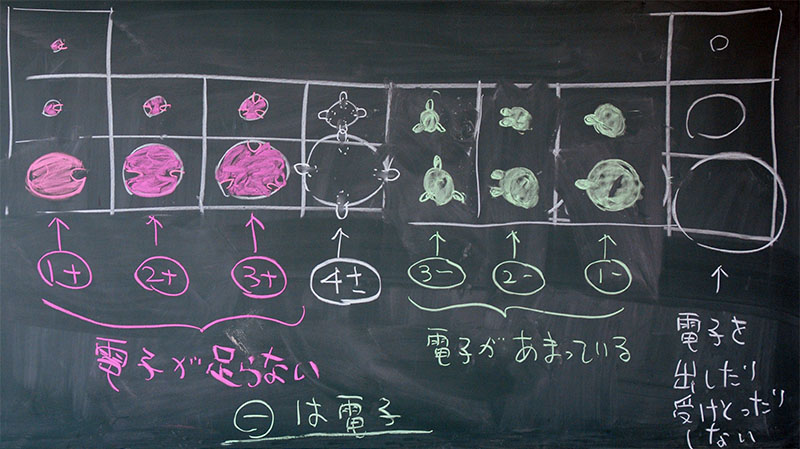 1+ 2+ 3+ 4± 3- 2- 1-
電子が足らない
電子があまっている
⊖は電子
電子を
出したり
受けとったり
しない